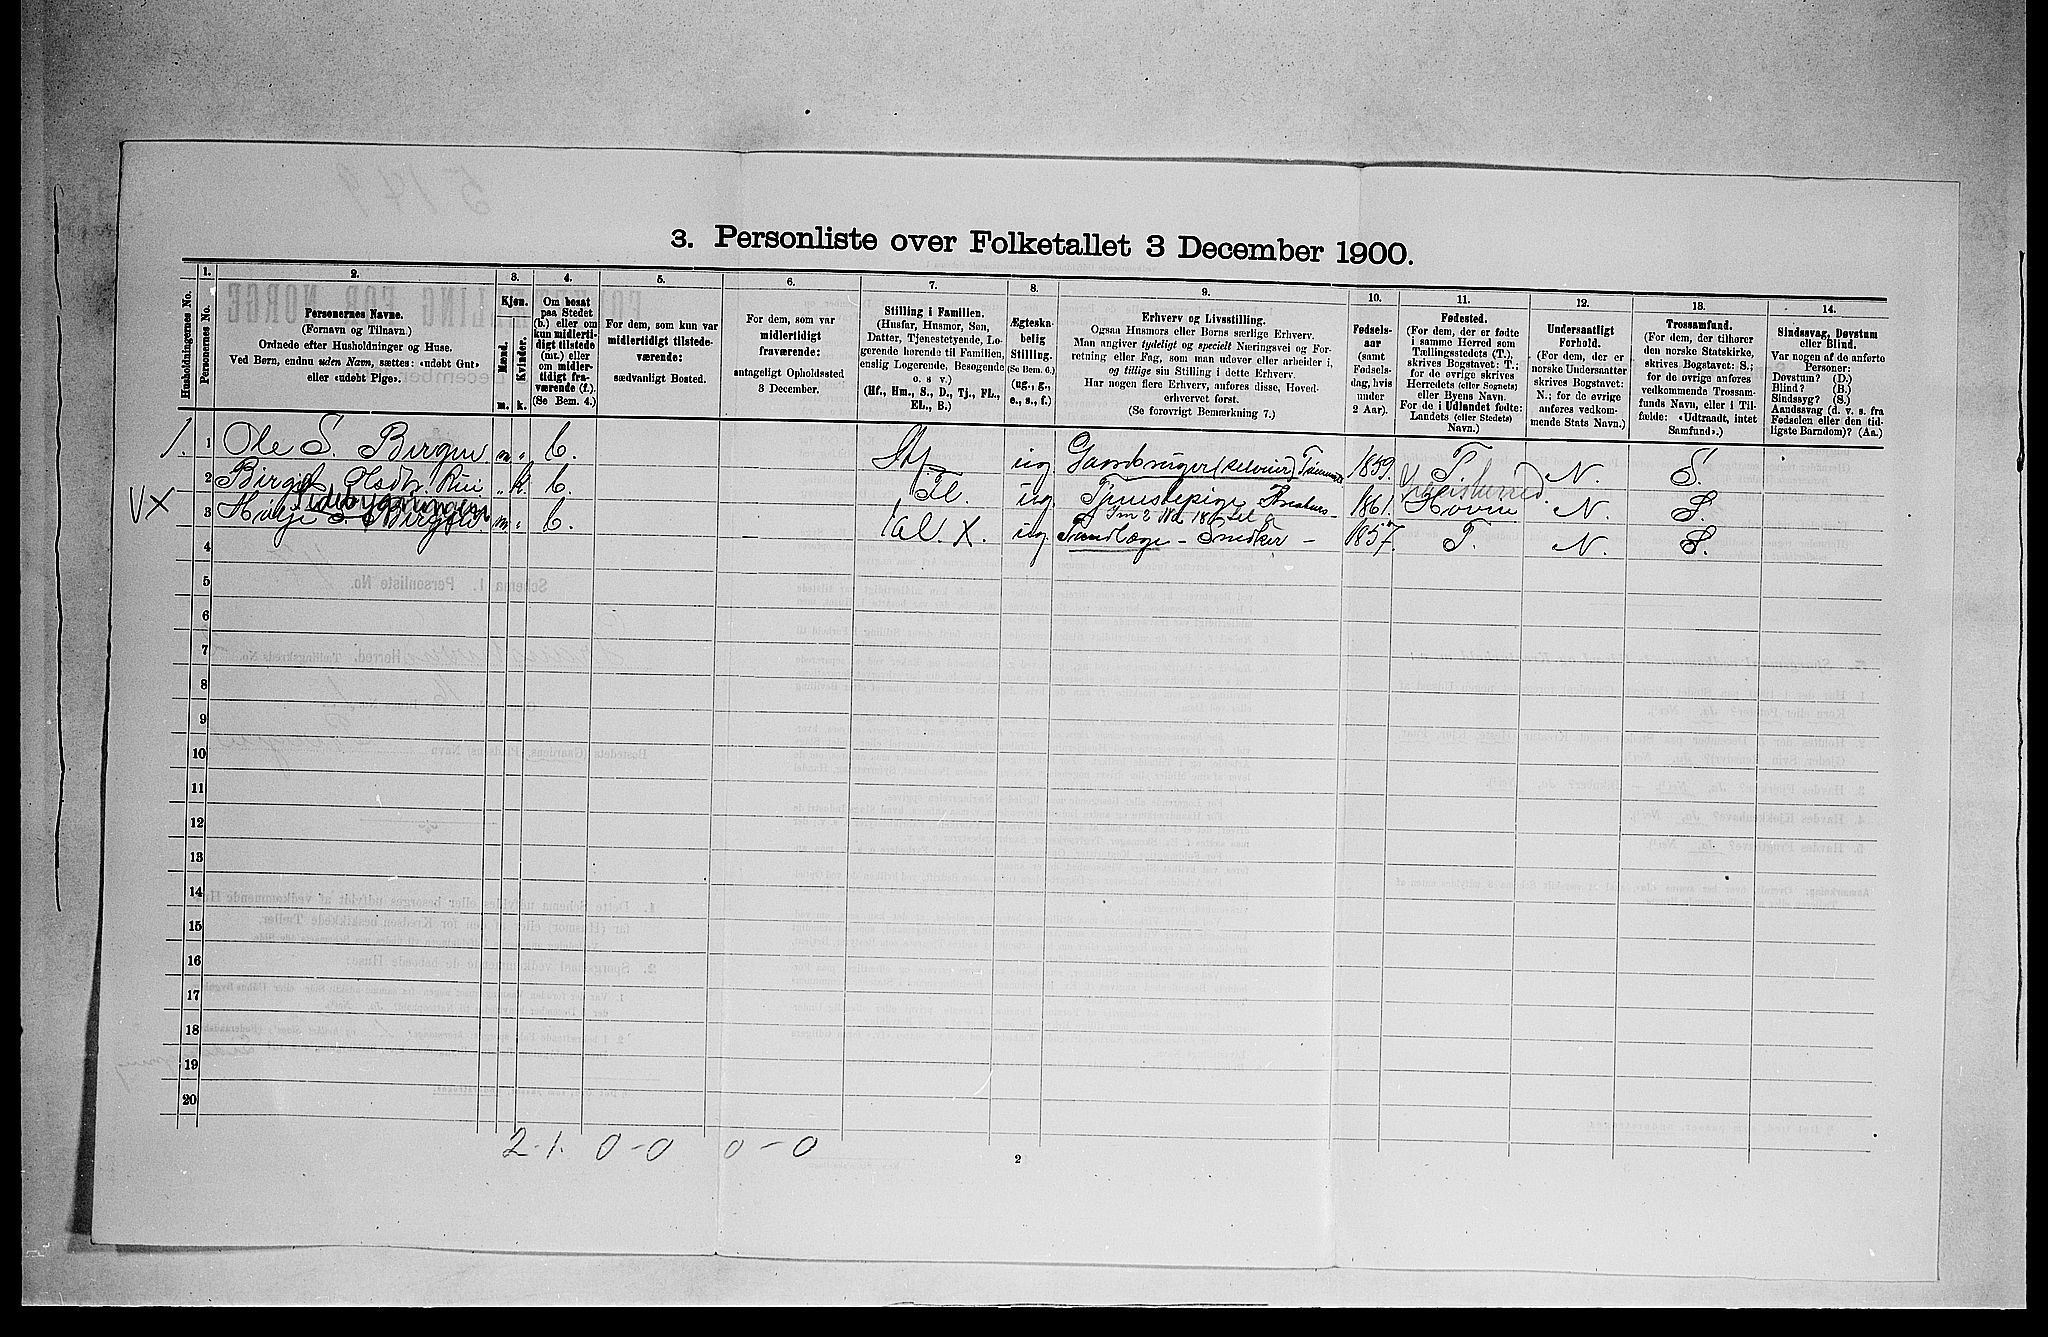 3. Personliste over Folketallet 3 December 1900.
Husholdningernes No.
1.
Personernes No.
2.
Personernes Navne.
(Fornavn og Tilnavn.)
Ordnede efter Husholdninger og Huse.
Ved Børn, endnu uden Navn, sættes: «udøbt Gut»
eller «udøbt Pige».
3.
Kjøn.
Mænd.
Kvinder.
m. k.
4.
Om bosat
paa Stedet
(b.) eller om
kun midlerti-
digt tilstede
(mt.) eller
om midler-
tidigt fra-
værende (f.).
(Se Bem. 4.)
5.
For dem, som kun var
midlertidigt tilstede-
værende:
sædvanligt Bosted.
6.
For dem, som var
midlertidigt
fraværende:
antageligt Opholdssted
3 December.
7.
Stilling i Familien.
(Husfar, Husmor, Søn,
Datter, Tjenestetyende, Lo-
gerende hørende til Familien,
enslig Logerende, Besøgende
o. s v.)
(Hf., Hm., S., D., Tj., FL.,
EL., B.)
8.
Ægteska-
belig
Stilling.
(Se Bem. 6.)
(ug., g.,
e., s., f.)
9.
Erhverv og Livsstilling.
Ogsaa Husmors eller Børns særlige Erhverv.
Man angiver tydeligt og specielt Næringsvei og For-
retning eller Fag, som man udøver eller arbeider i,
og tillige sin Stilling i dette Erhverv.
Har nogen flere Erhverv, anføres disse, Hoved-
erhvervet først.
(Se forøvrigt Bemærkning 7.)
10.
Fødsels-
aar
(samt
Fødsels-
dag, hvis
under
2 Aar).
11.
Fødested.
(For dem, der er fødte
i samme Herred som
Tællingsstedets (T.),
skrives Bogstavet: T.;
for de øvrige skrives
Herredets (eller Sognets)
eller Byens Navn.
For de i Udlandet fødte:
Landets (eller Stedets)
Navn.)
12.
Undersaatligt
Forhold.
(For dem, der er
norske Undersaatter
skrives Bogstavet:
N.; for de øvrige
anføres vedkom-
mende Stats Navn.)
13.
Trossamfund.
(For dem, der tilhører
den norske Statskirke,
skrives Bogstavet: S.;
for de øvrige anføres
vedkommende Trossam-
funds Navn, eller i Til-
fælde: «Udtraadt, intet
Samfund».)
14.
Sindssvag, Døvstum
eller Blind.
Var nogen af de anførte
Personer:
Døvstum? (D.)
Blind? (B.)
Sindssyg? (S.)
Aandssvag (d. v. s. fra
Fødselen eller den tid-
ligste Barndom)? (Aa.)
1. 1 Ole S. Bergen m " b. ug. Gaardbruger (selveier) 1859. T N. S.
2 Birgit Olsdtr. Rui " k b. ug. Tjenestepige 1861. Hovin N. S.
Sidebygningen
VX 3 m " b. X. ug. Tandlæge - Snedker - 1857. T. N. S.
4
5
6
7
8
9
10
11
12
13
14
15
16
17
18
19
20
2-1. 0-0 0-0
2